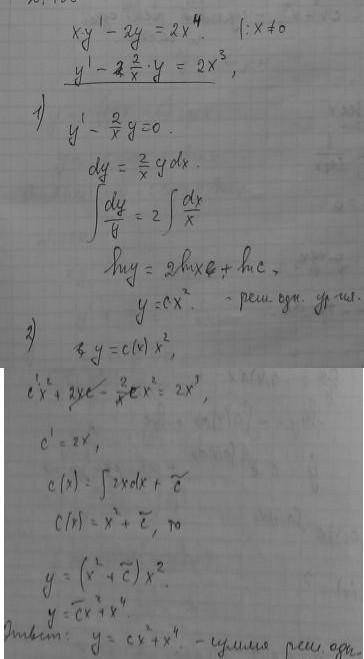 x·y' − 2y = 2x⁴. |: x ≠ 0
y' − 2/x · y = 2x³,
1)
y' − 2/x y = 0.
dy = 2/x y dx.
∫ dy/y = 2 ∫ dx/x
ln y = 2 ln x + ln c.
y = cx². - реш. одн. ур-ия.
2)
y = c(x) x²,
c'x² + 2xc − 2/x c x² = 2x³,
c' = 2x,
c(x) = ∫ 2x dx + c̃
c(x) = x² + c̃, то
y = (x² + c̃) x².
y = c̃x² + x⁴.
Ответ: y = cx² + x⁴. - сумма реш. одн.